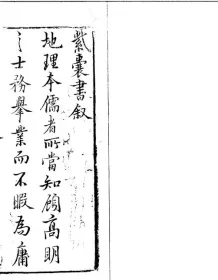 紫囊書叙
地理本儒者所當知顧高明
之士務舉業而不暇為庸